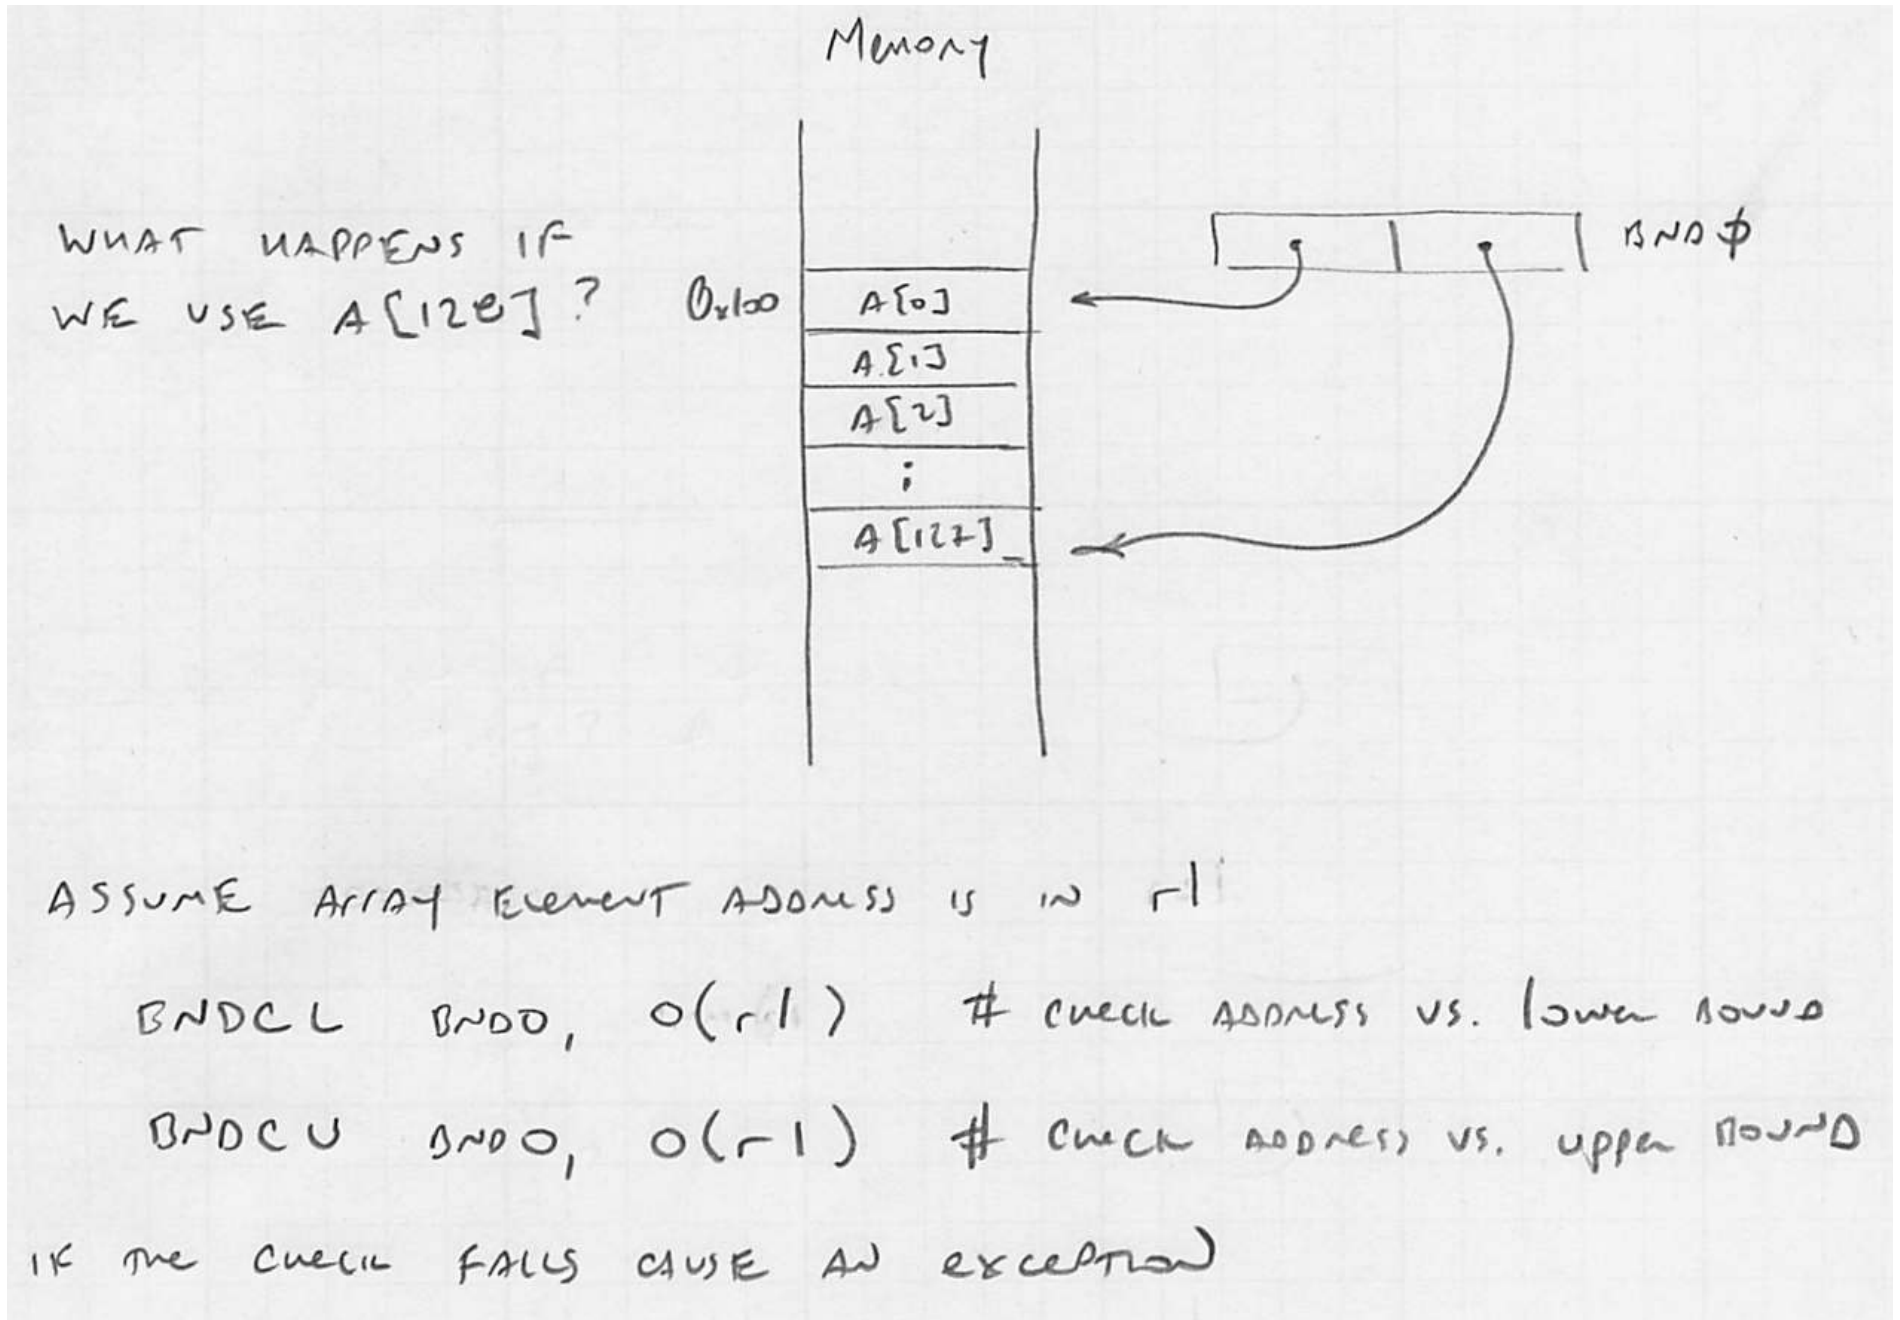 Memory
WHAT HAPPENS IF
WE USE A[128]?
BND0
0x100
A[0]
A[1]
A[2]
:
A[127]
ASSUME Array Element ADDRESS IS IN r1
BNDCL BND0, 0(r1) # CHECK ADDRESS VS. lower BOUND
BNDCU BND0, 0(r1) # CHECK ADDRESS VS. upper BOUND
IF THE CHECK FAILS CAUSE AN exception